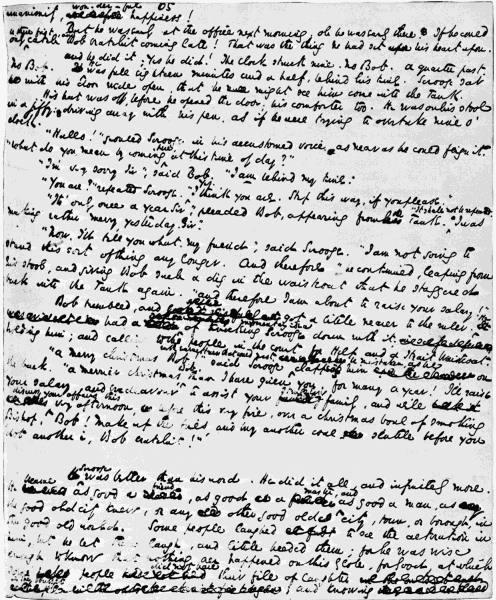 unanimity, won-der-ful happiness!
But he was early at the office next morning. oh he was early there. If he could
only catch Bob Cratchit coming late! That was the thing he had set upon his heart upon.
and he did it; Yes he did! The clock struck nine. No Bob. a quarter past
No Bob. He was full eighteen minutes and a half, behind his time. Scrooge sat
with his door wide open, that he might see him come into the Tank.
His hat was off before he opened the door; his comforter too. He was on his stool
in a jiffy; driving away with his pen, as if he were trying to overtake nine o'
clock.
"Hallo!" growled Scrooge in his accustomed voice, as near as he could feign it.
"What do you mean by coming here at this time of day?"
"I'm very sorry Sir," said Bob. "I am behind my time."
"You are?" repeated Scrooge. "Yes. I think you are. Step this way, if you please."
"It's only once a year Sir," pleaded Bob, appearing from the Tank. "It shall not be repeated. I was
making rather merry, yesterday, Sir."
"Now, I'll tell you what, my friend," said Scrooge. "I am not going to
stand this sort of thing any longer. And therefore" he continued, leaping from
his stool, and giving Bob such a dig in the waistcoat that he staggered
back into the Tank again. "and therefore I am about to raise your salary!"
Bob trembled, and got a little nearer to the ruler. He
had a momentary idea of knocking Scrooge down with it;
holding him; and calling to the people in the court for Help and a Strait Waistcoat
"a merry christmas Bob" said Scrooge as he clapped him on
the back. "a merrier christmas Bob than I have given you, for many a year! I'll raise
Your salary, and endeavour to assist your struggling family, and we'll
discuss your affairs this very afternoon, over a christmas bowl of smoking
Bishop, Bob! make up the fires and buy another coal scuttle before you
dot another i, Bob Cratchit!"
Scrooge was better than his word. He did it all, and infinitely more.
He became as good a friend, as good a master, and as good a man, as
the good old city knew, or any other good old city, town, or borough, in
the good old world. Some people laughed to see the alteration in
him, but he let them laugh, and little heeded them; for he was wise
enough to know that nothing ever happened on this Globe, for good, at which
some people did not have their fill of laughter and knowing